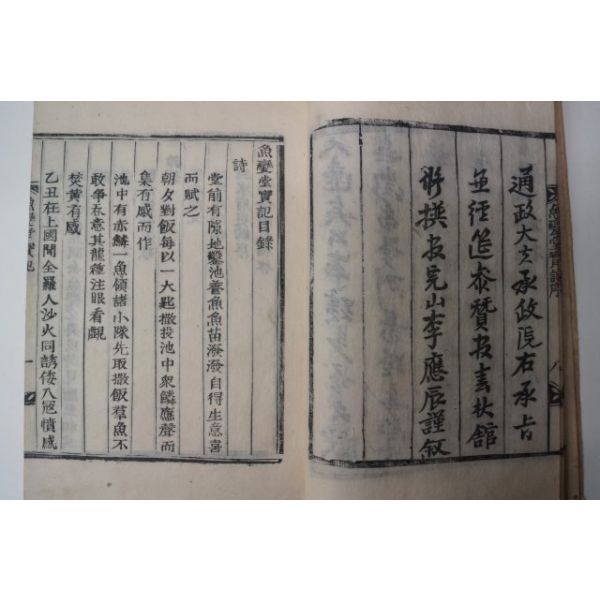 通政大夫承政院右承旨
兼經筵參贊官春秋館
修撰官完山李應辰謹敘
魚變堂實記目錄
詩
堂前有隙地鑿池養魚魚苗潑潑自得生意喜
而賦之
朝夕對飯每以一大匙撒投池中衆鱗應聲而
集有感而作
池中有赤鱗一魚領諸小隊先取撒飯羣魚不
敢爭吞意其龍種注眼看覰
焚黃有感
乙丑在上國聞全羅人沙火同誘倭入寇憤感